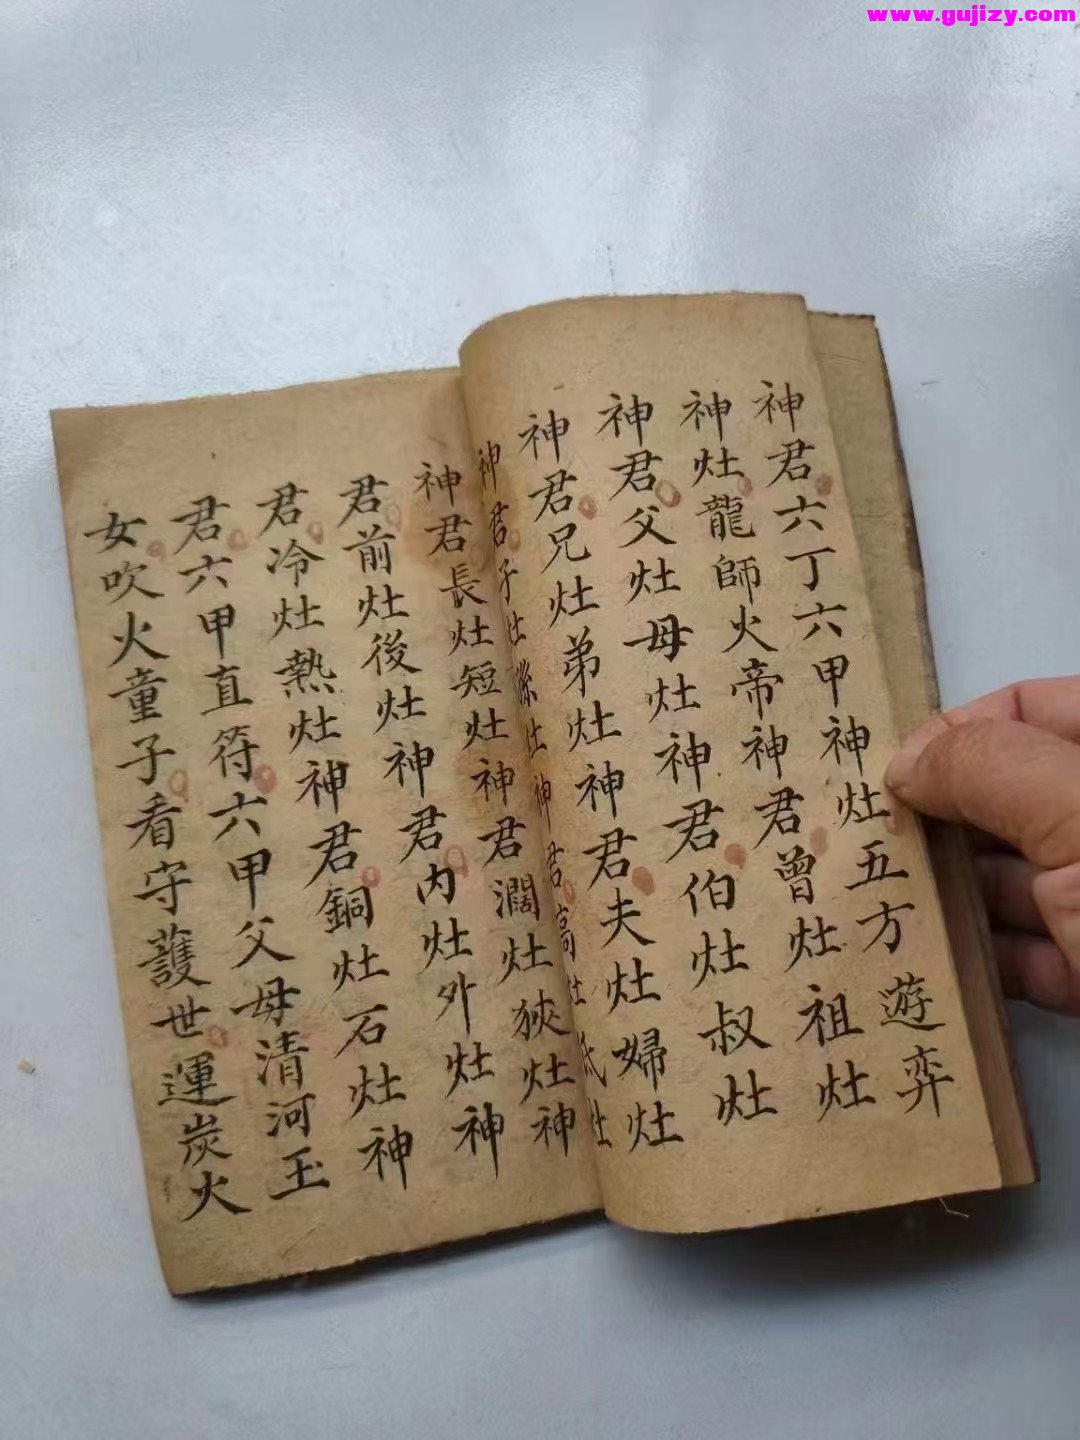 www.gujizy.com
神君六丁六甲神灶五方遊弈
神灶龍師火帝神君曾灶祖灶
神君父灶母灶神君伯灶叔灶
神君兄灶弟灶神君夫灶婦灶
神君子灶孫灶神君高灶低灶
神君長灶短灶神君濶灶狹灶神
君前灶後灶神君内灶外灶神
君冷灶熱灶神君銅灶石灶神
君六甲直符六甲父母清河玉
女吹火童子看守護世運炭火